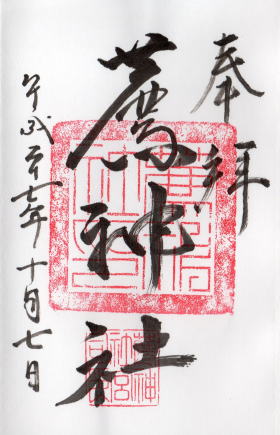 奉拝
薦神社
平成二十七年十月七日